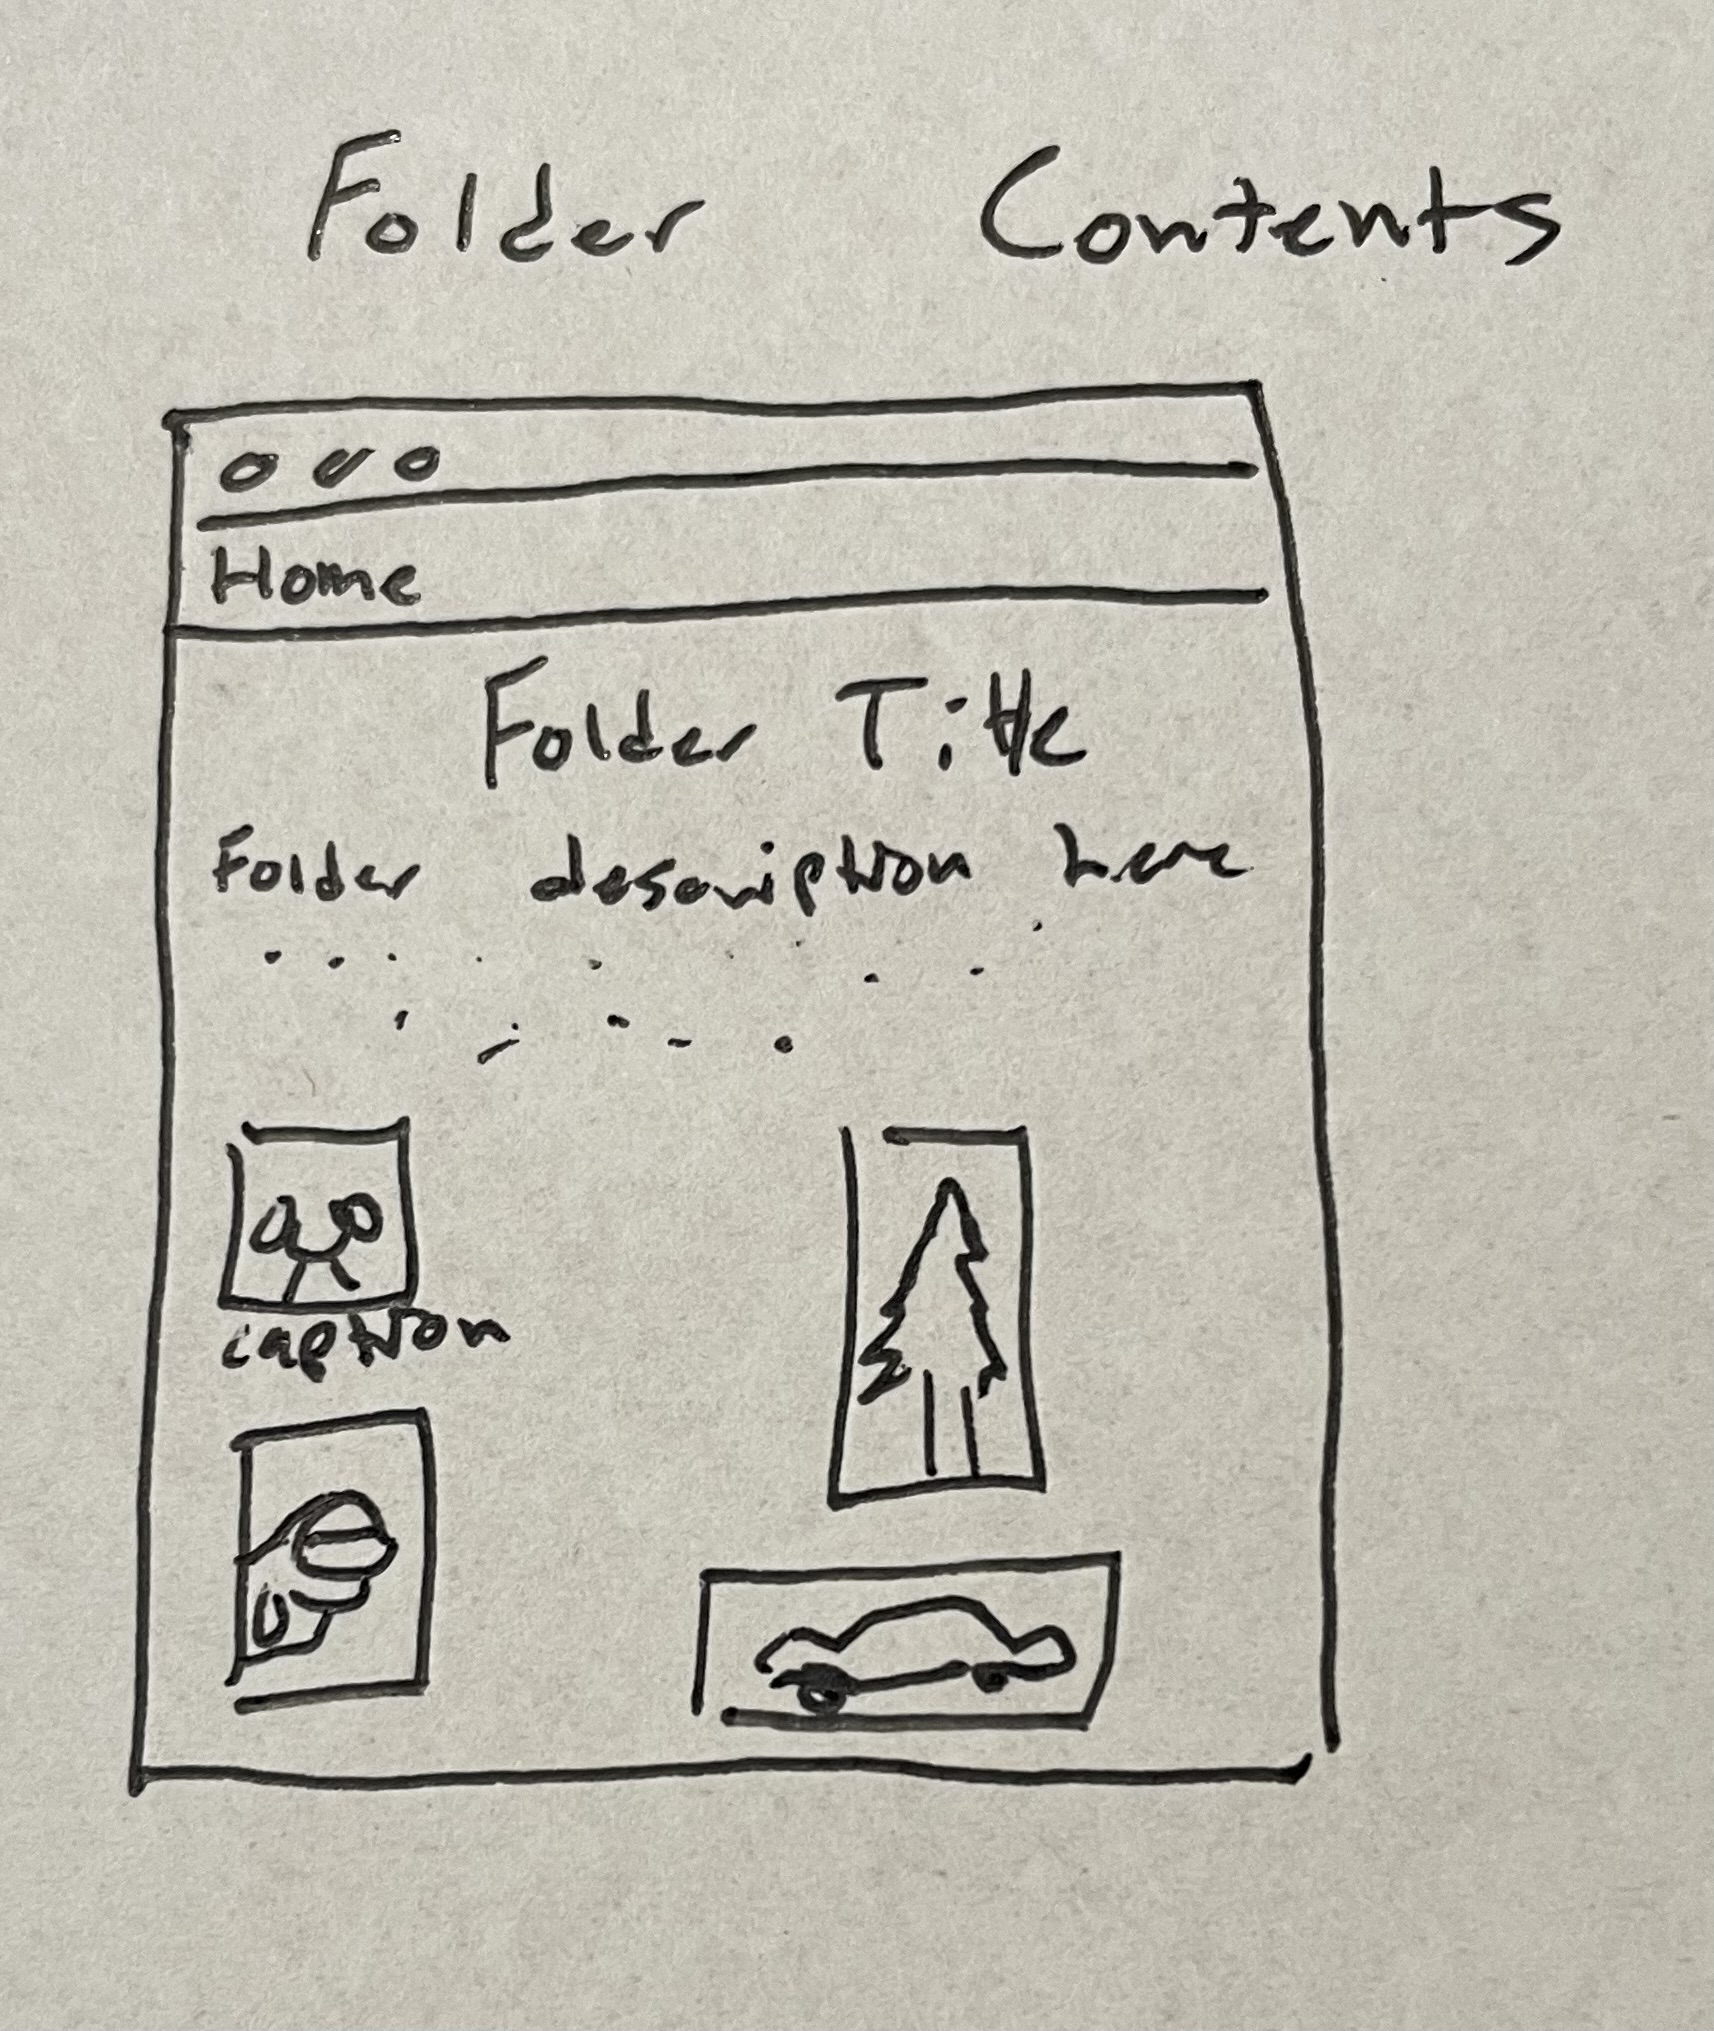 Folder Contents
Home
Folder Title
Folder description here
caption